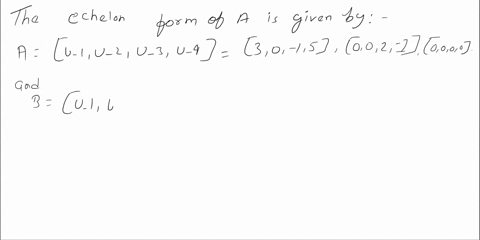 The echelon form of A is given by:-
A = [U-1, U-2, U-3, U-4] = [3, 0, -1, 5], [0, 0, 2, -2], [0, 0, 0, 0]
and
B = [U-1, U